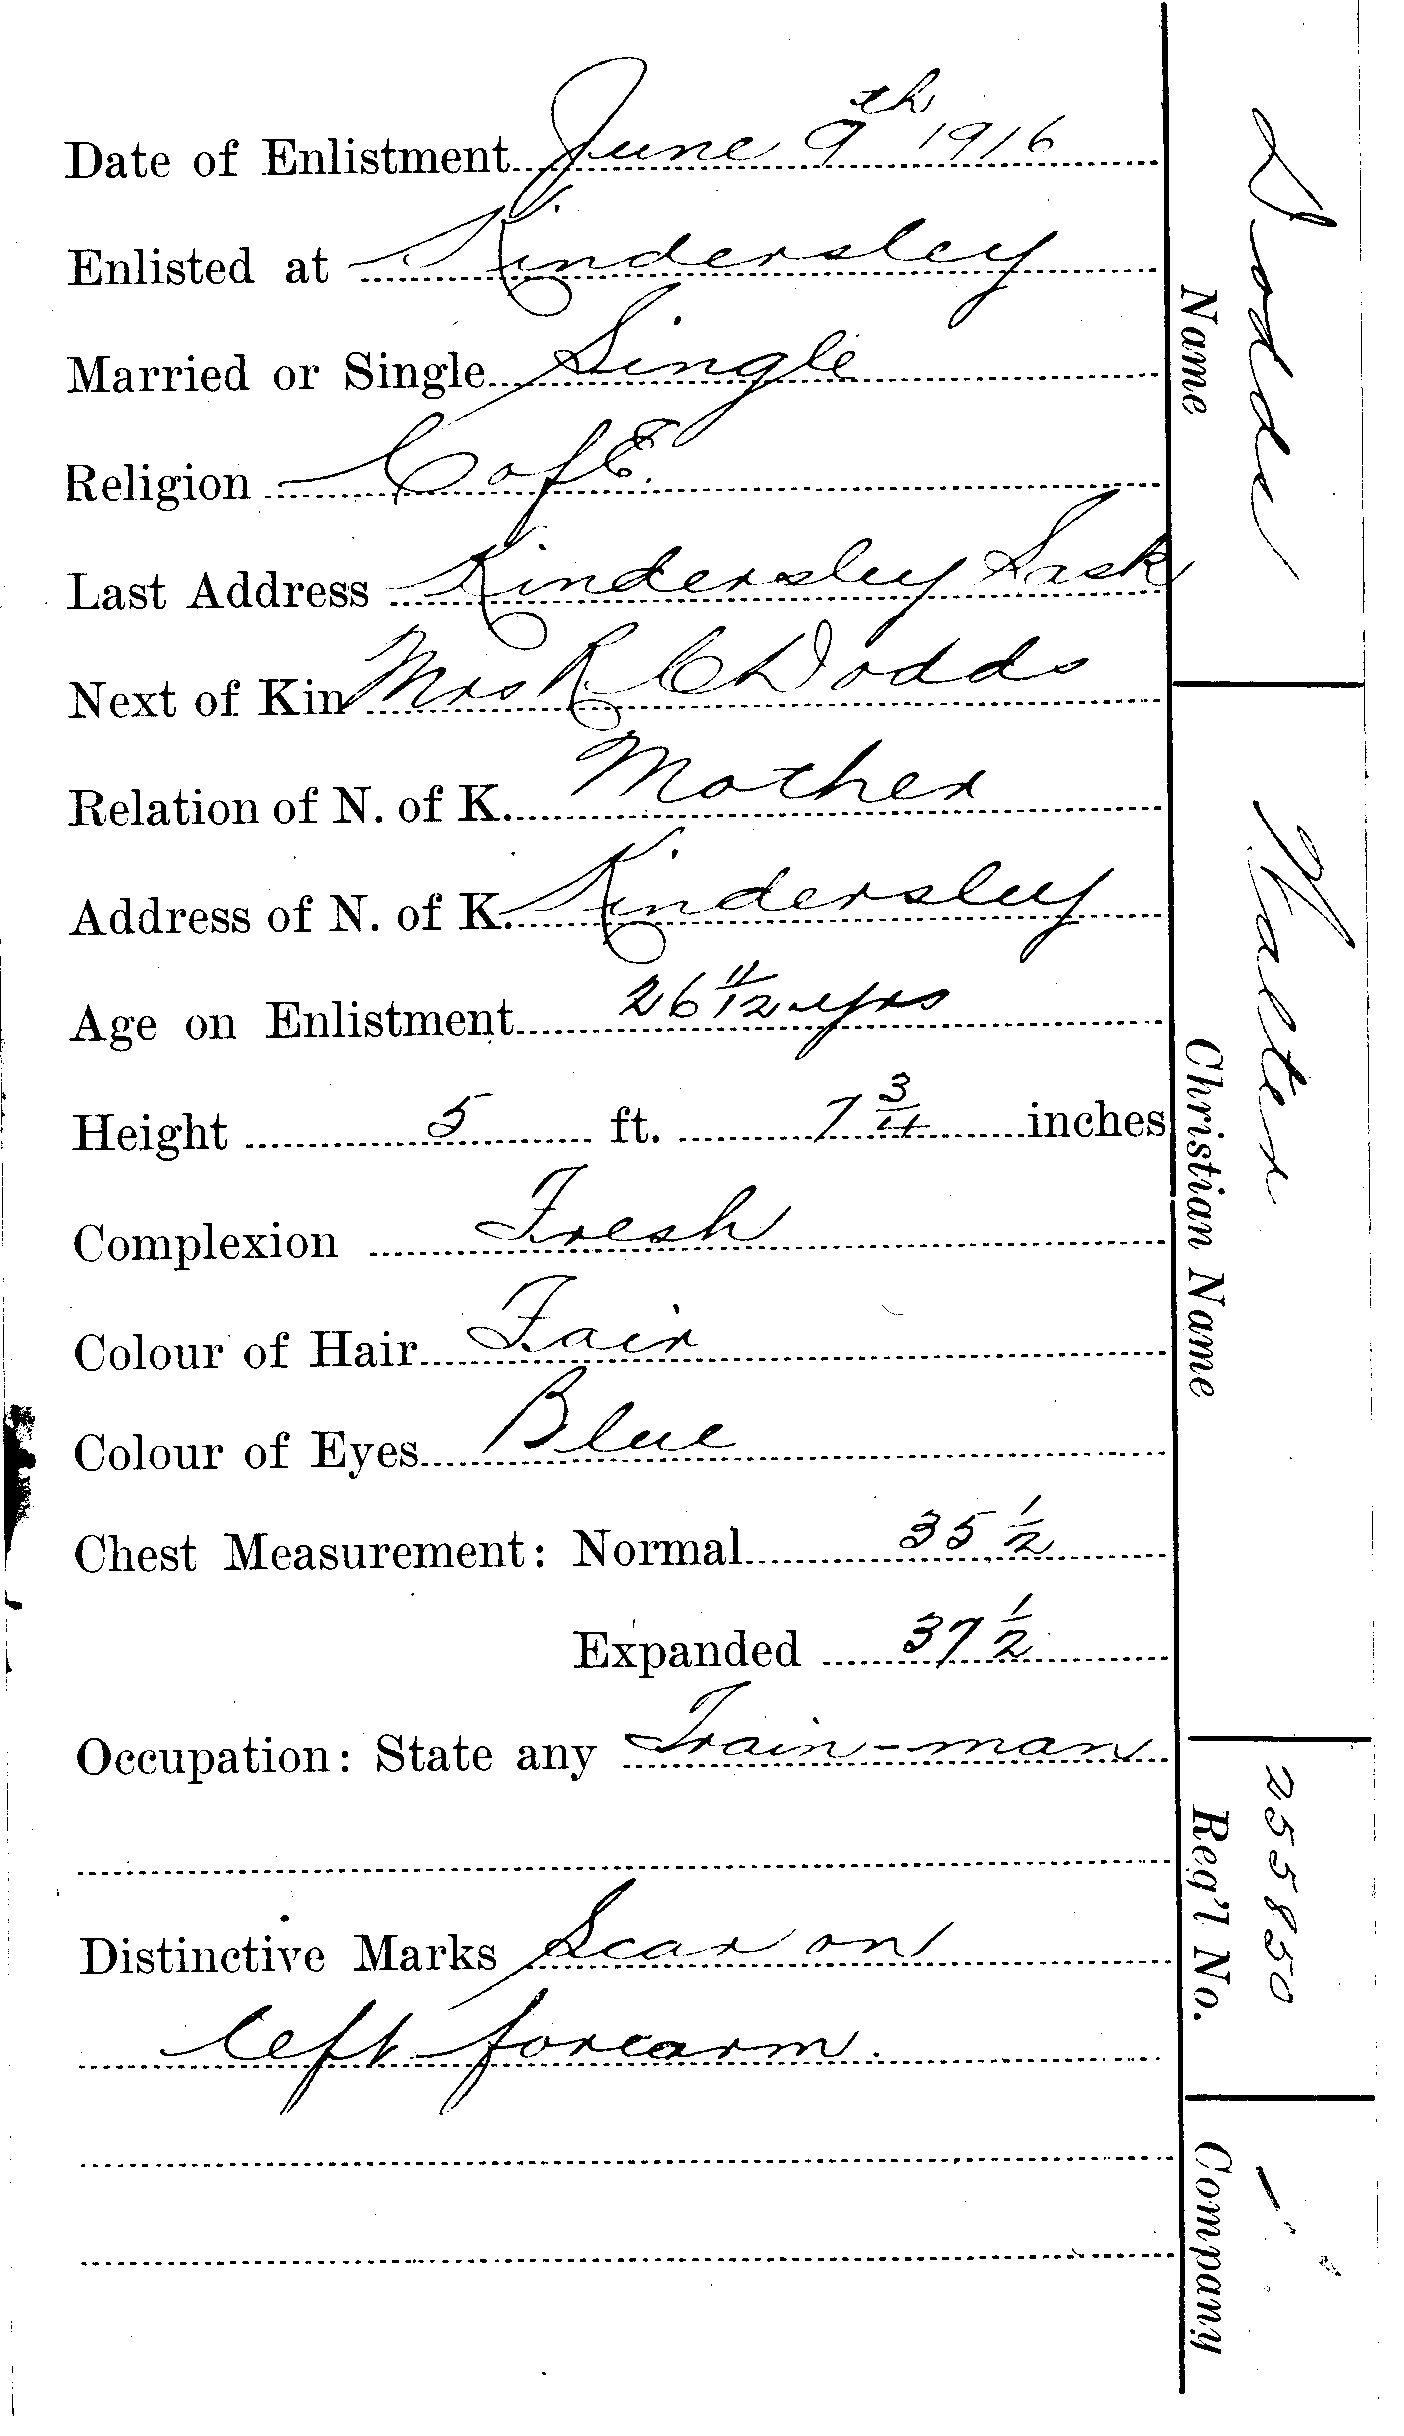 Date of Enlistment June 9th 1916
Enlisted at Kindersley
Married or Single Single
Religion C of E.
Last Address Kindersley Sask
Next of Kin Mrs R C Dodds
Relation of N. of K. Mother
Address of N. of K. Kindersley
Age on Enlistment 26 11/12 yrs
Height 5 ft. 7 3/4 inches
Complexion Fresh
Colour of Hair Fair
Colour of Eyes Blue
Chest Measurement: Normal 35 1/2
Expanded 37 1/2
Occupation: State any Train-man
Distinctive Marks Scar on
left forearm.
Name Dodds
Christian Name Walter
Reg'l No. 255850
Company